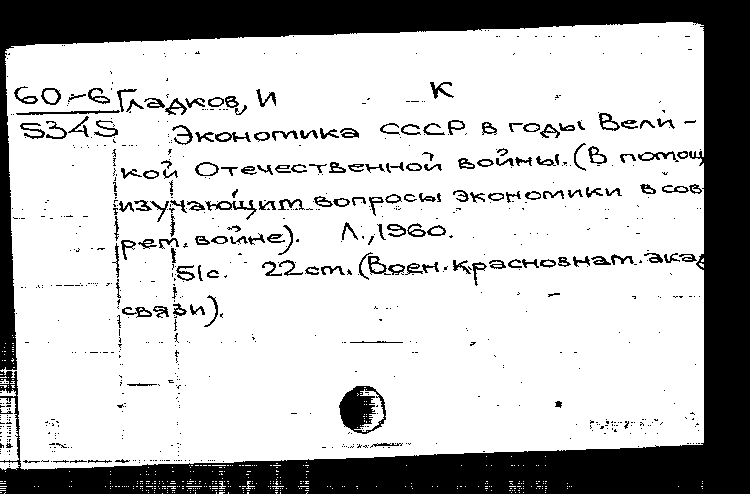 60-6 Гладков, И К
5345 Экономика СССР в годы Вели-
кой Отечественной войны. (В помощ
изучающим вопросы экономики в сов
рет. войне). Л., 1960.
51с. 22 cm. (Воен. краснознам. акад
связи).